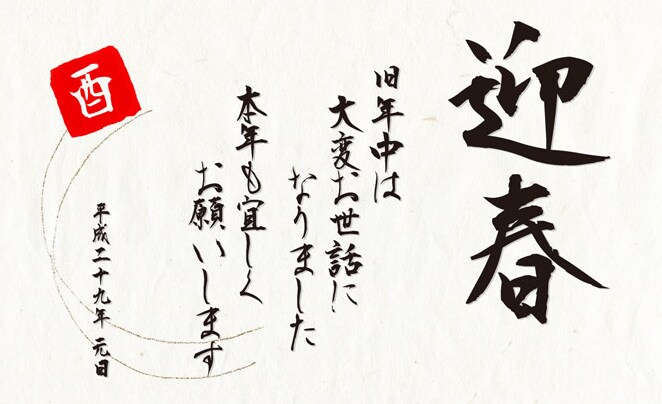 迎春
旧年中は
大変お世話に
なりました
本年も宜しく
お願いします
平成二十九年 元日
酉